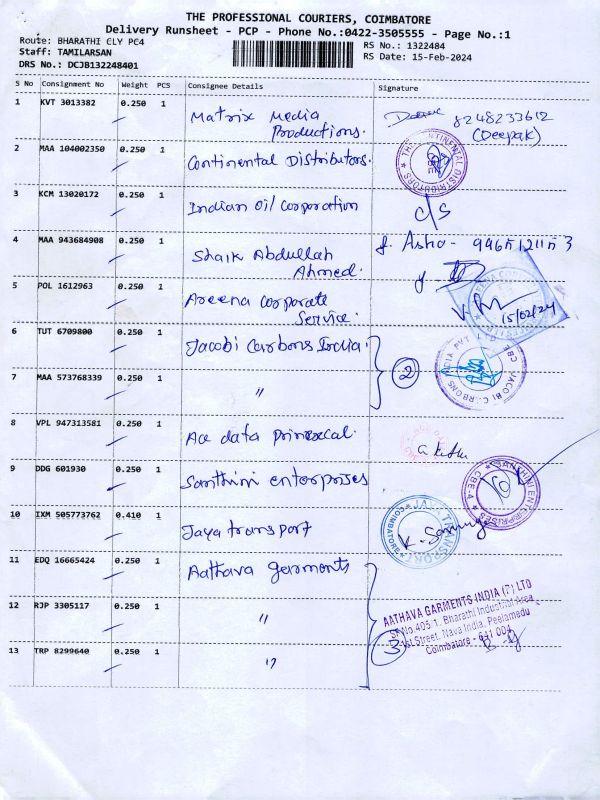 THE PROFESSIONAL COURIERS, COIMBATORE
Delivery Runsheet - PCP - Phone No.:0422-3505555 - Page No.:1
Route: BHARATHI CLY PC4
RS No.: 1322484
Staff: TAMILARSAN
RS Date: 15-Feb-2024
DRS No.: DCJB132248401
S No Consignment No Weight PCS Consignee Details Signature
1 KVT 3013382 0.250 1 Matrix Media Productions. 8248233612 (Deepak)
2 MAA 104002350 0.250 1 Continental Distributors.
3 KCM 13020172 0.250 1 Indian Oil Corporation c/s
4 MAA 943684908 0.250 1 Shaik Abdullah Ahmed.
5 POL 1612963 0.250 1 Areena Corporate Service. 15/02/24
6 TUT 6709800 0.250 1 Jacobi Carbons India.
7 MAA 573768339 0.250 1 " 2
8 VPL 947313581 0.250 1 Ace data
9 DDG 601930 0.250 1 Santhini enterprises
10 IXM 505773762 0.410 1 Jaya transport
11 EDQ 16665424 0.250 1 Aathava garments
12 RJP 3305117 0.250 1 "
13 TRP 8299640 0.250 1 " 3
AATHAVA GARMENTS INDIA (P) LTD
No 405 1, Bharathi Industrial Area
1st Street, Nava India, Peelamedu
Coimbatore - 641 004